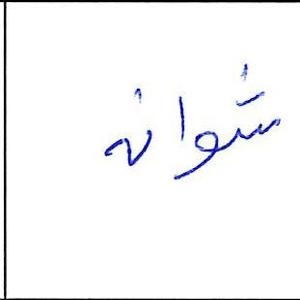 شوانە